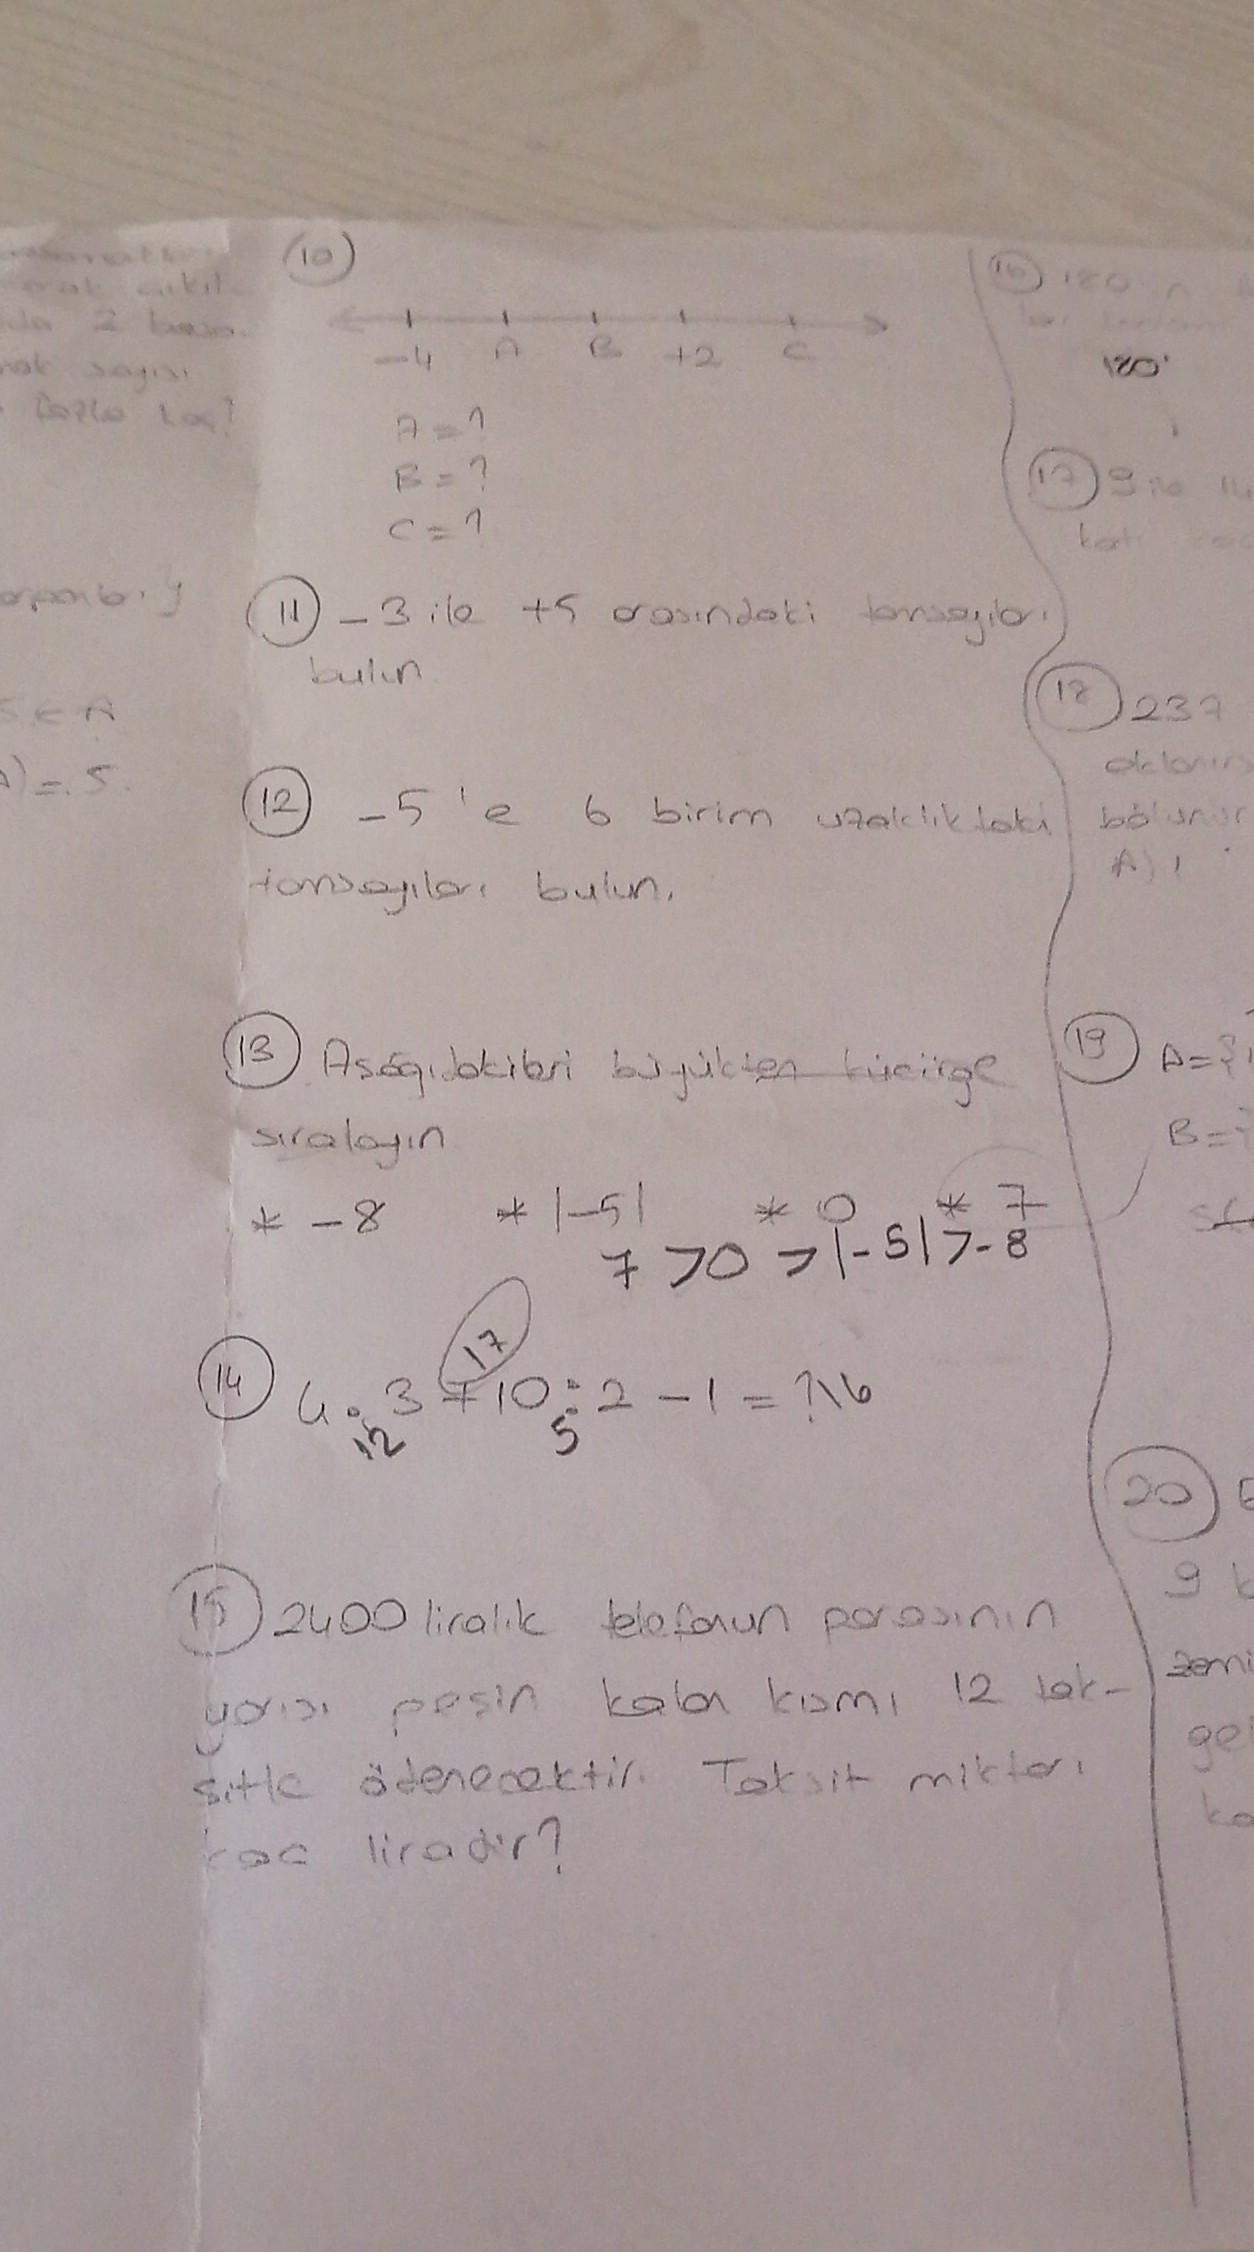 2 basa
fazla kaç?
5 ∈ A
) = 5.
10
-4 A B +2 C
A = ?
B = ?
C = ?
11 -3 ile +5 arasındaki tamsayıları
bulun
12 -5'e 6 birim uzaklıktaki
tamsayıları bulun.
13 Aşağıdakileri büyükten küçüğe
sıralayın
* -8 * |-5| * 0 * 7
7 > 0 > |-5| > -8
17
14 4 . 3 + 10 : 2 - 1 = ? 16
12 5
15 2400 liralık telefonun parasının
yarısı peşin kalan kısmı 12 tak-
sitle ödenecektir. Taksit miktarı
kaç liradır?
16 180'n
180
17 9 ile 14
katı
18 237
A) 1
19 A = {
B = {
20
9